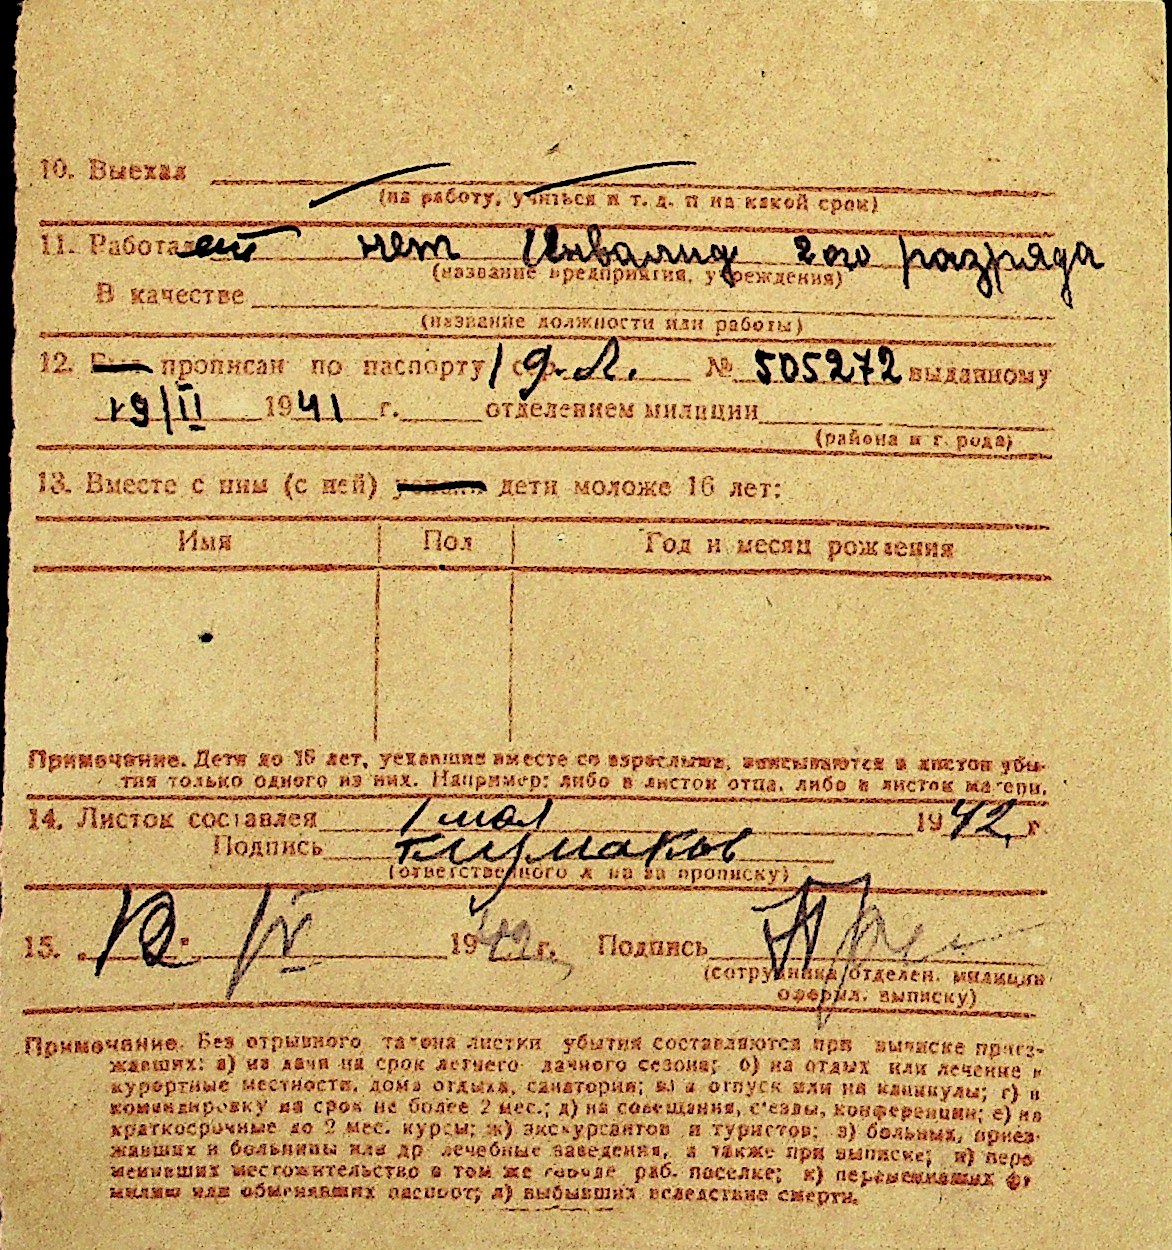 10. Выехал
(на работу, учиться и т. д. и на какой срок)
11. Работает нет Инвалид 2ого разряда
(название предприятия, учреждения)
В качестве
(название должности или работы)
12. Был прописан по паспорту 1 9. Л. № 505272 выданному
19/II 1941 г. отделением милиции
(района и города)
13. Вместе с ним (с ней) уехали дети моложе 16 лет:
Имя Пол Год и месяц рождения
Примечание. Дети до 16 лет, уехавшие вместе со взрослыми, вписываются в листок убы-
тия только одного из них. Например: либо в листок отца, либо в листок матери.
14. Листок составлен 1 мая 1942 г.
Подпись
(ответственного лица за прописку)
15. 1942 г. Подпись
(сотрудника отделен. милиции
оформл. выписку)
Примечание. Без отрывного талона листки убытия составляются при выписке приез-
жавших: а) на дачи на срок летнего дачного сезона; б) на отдых или лечение в
курортные местности, дома отдыха, санатории; в) в отпуск или на каникулы; г) в
командировку на срок не более 2 мес.; д) на совещания, с'езды, конференции; е) на
краткосрочные до 2 мес. курсы; ж) экскурсантов и туристов; з) больных, приез-
жавших в больницы или др лечебные заведения, а также при выписке; и) пере
менивших местожительство в том же городе раб. поселке; к) переменивших фа
милию или обменявших паспорт; л) выбывших вследствие смерти.